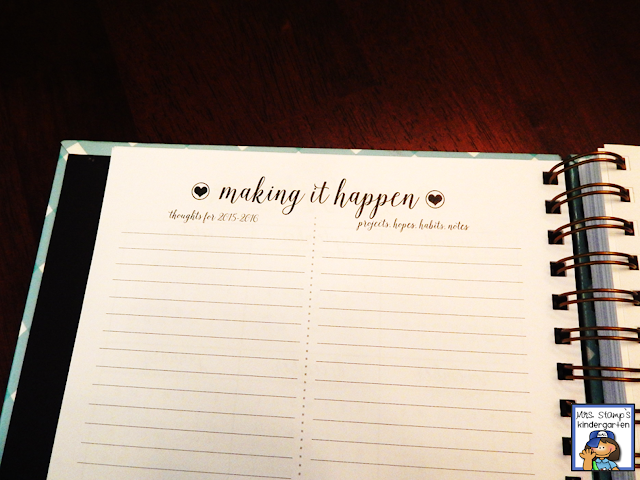 making it happen
thoughts for 2015-2016
projects, hopes, habits, notes
Mrs. Stamp's
kindergarten